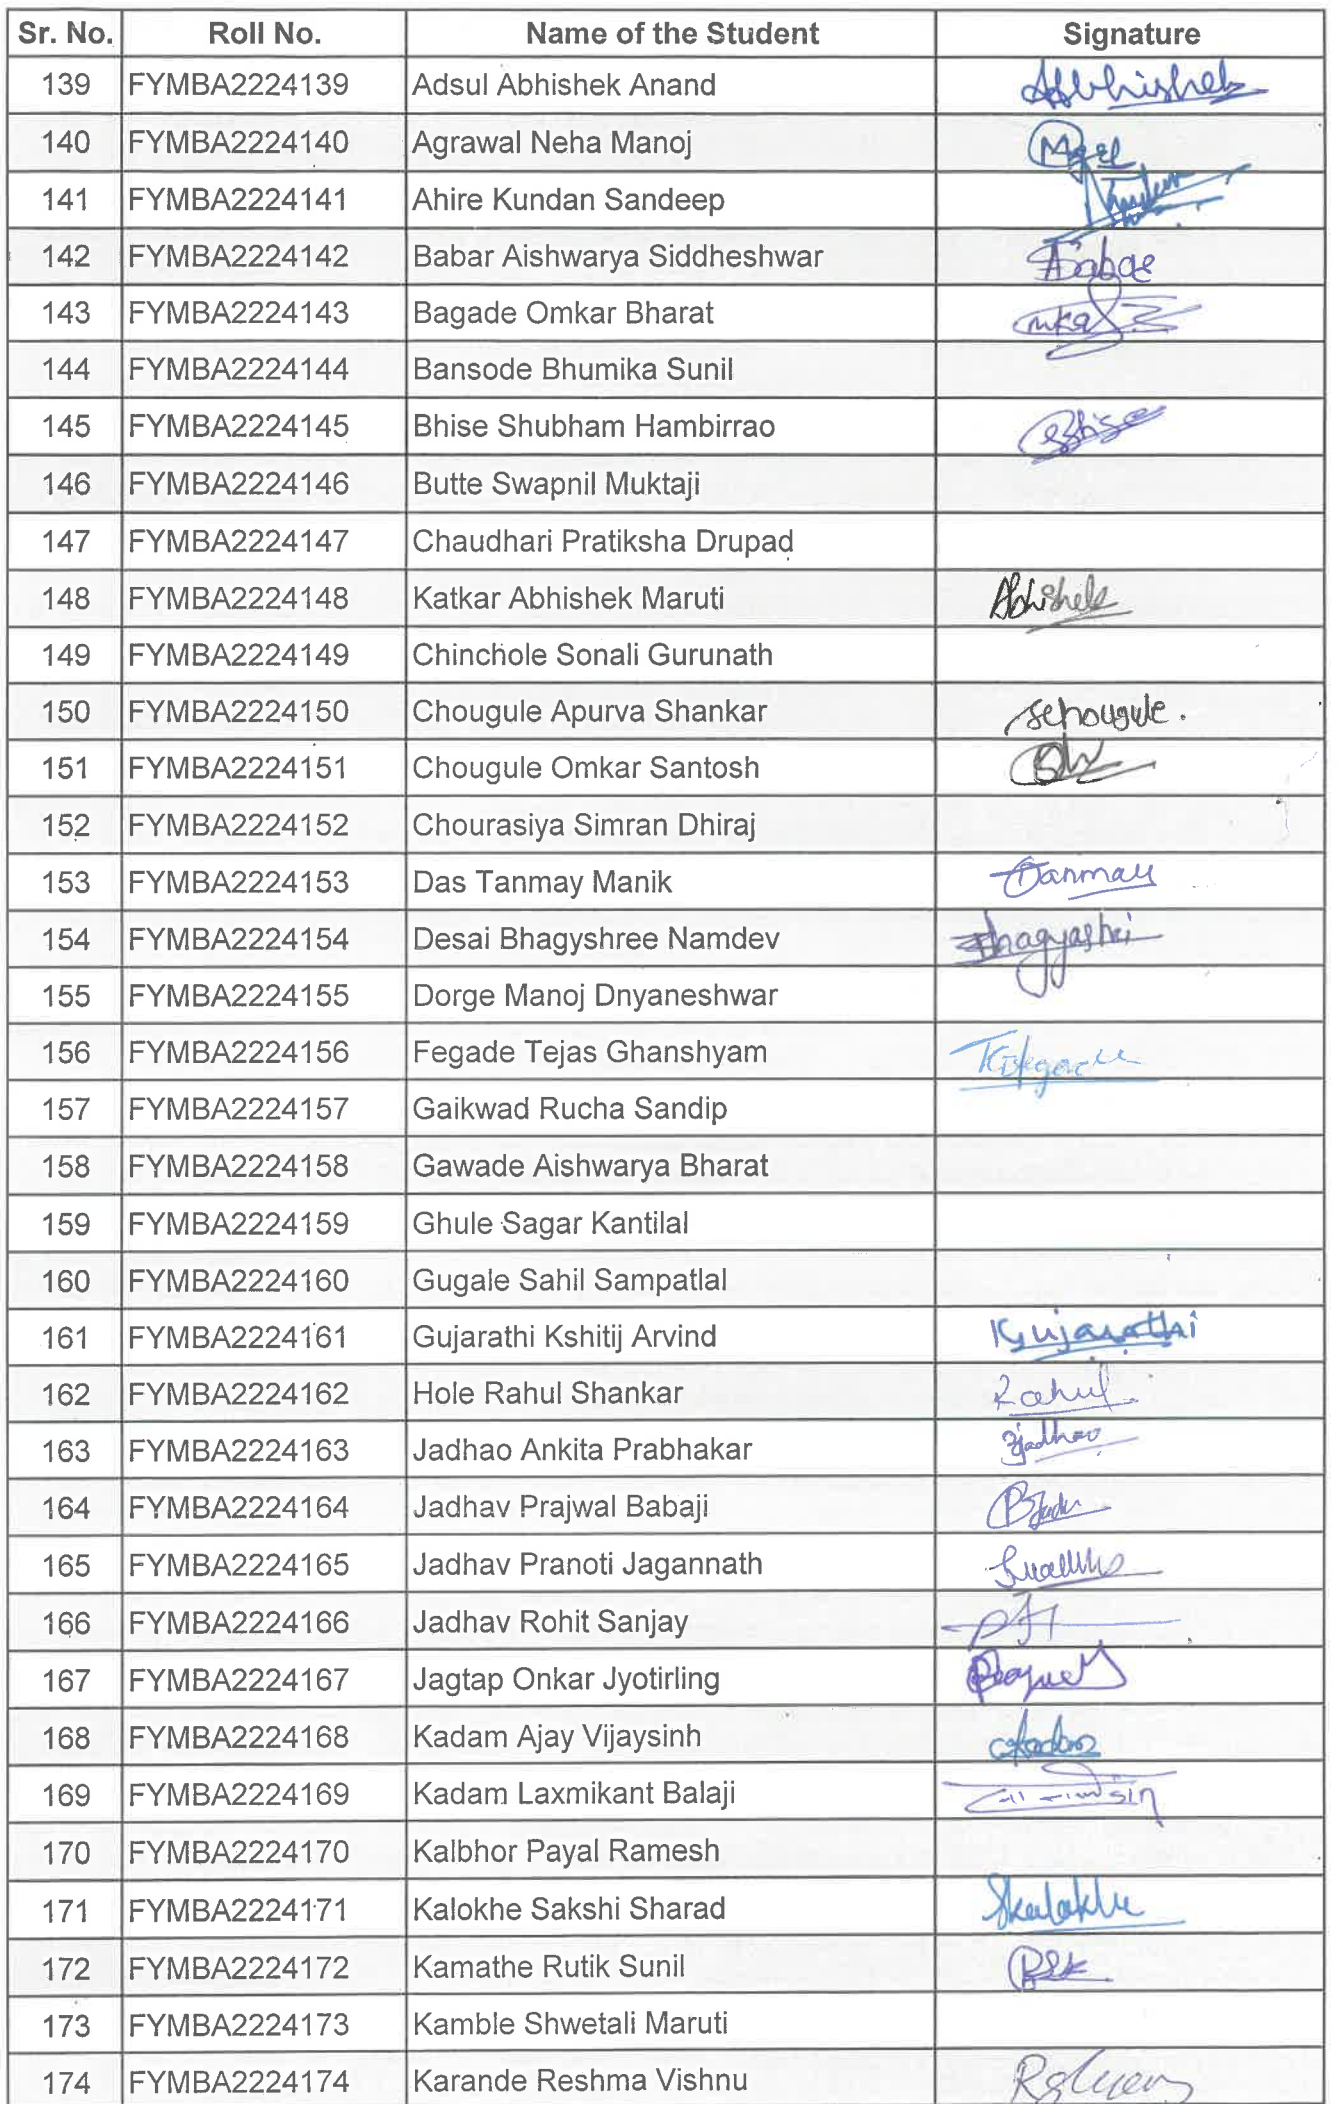 Sr. No. Roll No. Name of the Student Signature
139 FYMBA2224139 Adsul Abhishek Anand Abhishek
140 FYMBA2224140 Agrawal Neha Manoj
141 FYMBA2224141 Ahire Kundan Sandeep
142 FYMBA2224142 Babar Aishwarya Siddheshwar
143 FYMBA2224143 Bagade Omkar Bharat
144 FYMBA2224144 Bansode Bhumika Sunil
145 FYMBA2224145 Bhise Shubham Hambirrao
146 FYMBA2224146 Butte Swapnil Muktaji
147 FYMBA2224147 Chaudhari Pratiksha Drupad
148 FYMBA2224148 Katkar Abhishek Maruti Abhishek
149 FYMBA2224149 Chinchole Sonali Gurunath
150 FYMBA2224150 Chougule Apurva Shankar Schougule.
151 FYMBA2224151 Chougule Omkar Santosh
152 FYMBA2224152 Chourasiya Simran Dhiraj
153 FYMBA2224153 Das Tanmay Manik Tanmay
154 FYMBA2224154 Desai Bhagyshree Namdev
155 FYMBA2224155 Dorge Manoj Dnyaneshwar
156 FYMBA2224156 Fegade Tejas Ghanshyam
157 FYMBA2224157 Gaikwad Rucha Sandip
158 FYMBA2224158 Gawade Aishwarya Bharat
159 FYMBA2224159 Ghule Sagar Kantilal
160 FYMBA2224160 Gugale Sahil Sampatlal
161 FYMBA2224161 Gujarathi Kshitij Arvind Kgujarathi
162 FYMBA2224162 Hole Rahul Shankar Rahul
163 FYMBA2224163 Jadhao Ankita Prabhakar
164 FYMBA2224164 Jadhav Prajwal Babaji
165 FYMBA2224165 Jadhav Pranoti Jagannath
166 FYMBA2224166 Jadhav Rohit Sanjay
167 FYMBA2224167 Jagtap Onkar Jyotirling
168 FYMBA2224168 Kadam Ajay Vijaysinh
169 FYMBA2224169 Kadam Laxmikant Balaji
170 FYMBA2224170 Kalbhor Payal Ramesh
171 FYMBA2224171 Kalokhe Sakshi Sharad
172 FYMBA2224172 Kamathe Rutik Sunil
173 FYMBA2224173 Kamble Shwetali Maruti
174 FYMBA2224174 Karande Reshma Vishnu